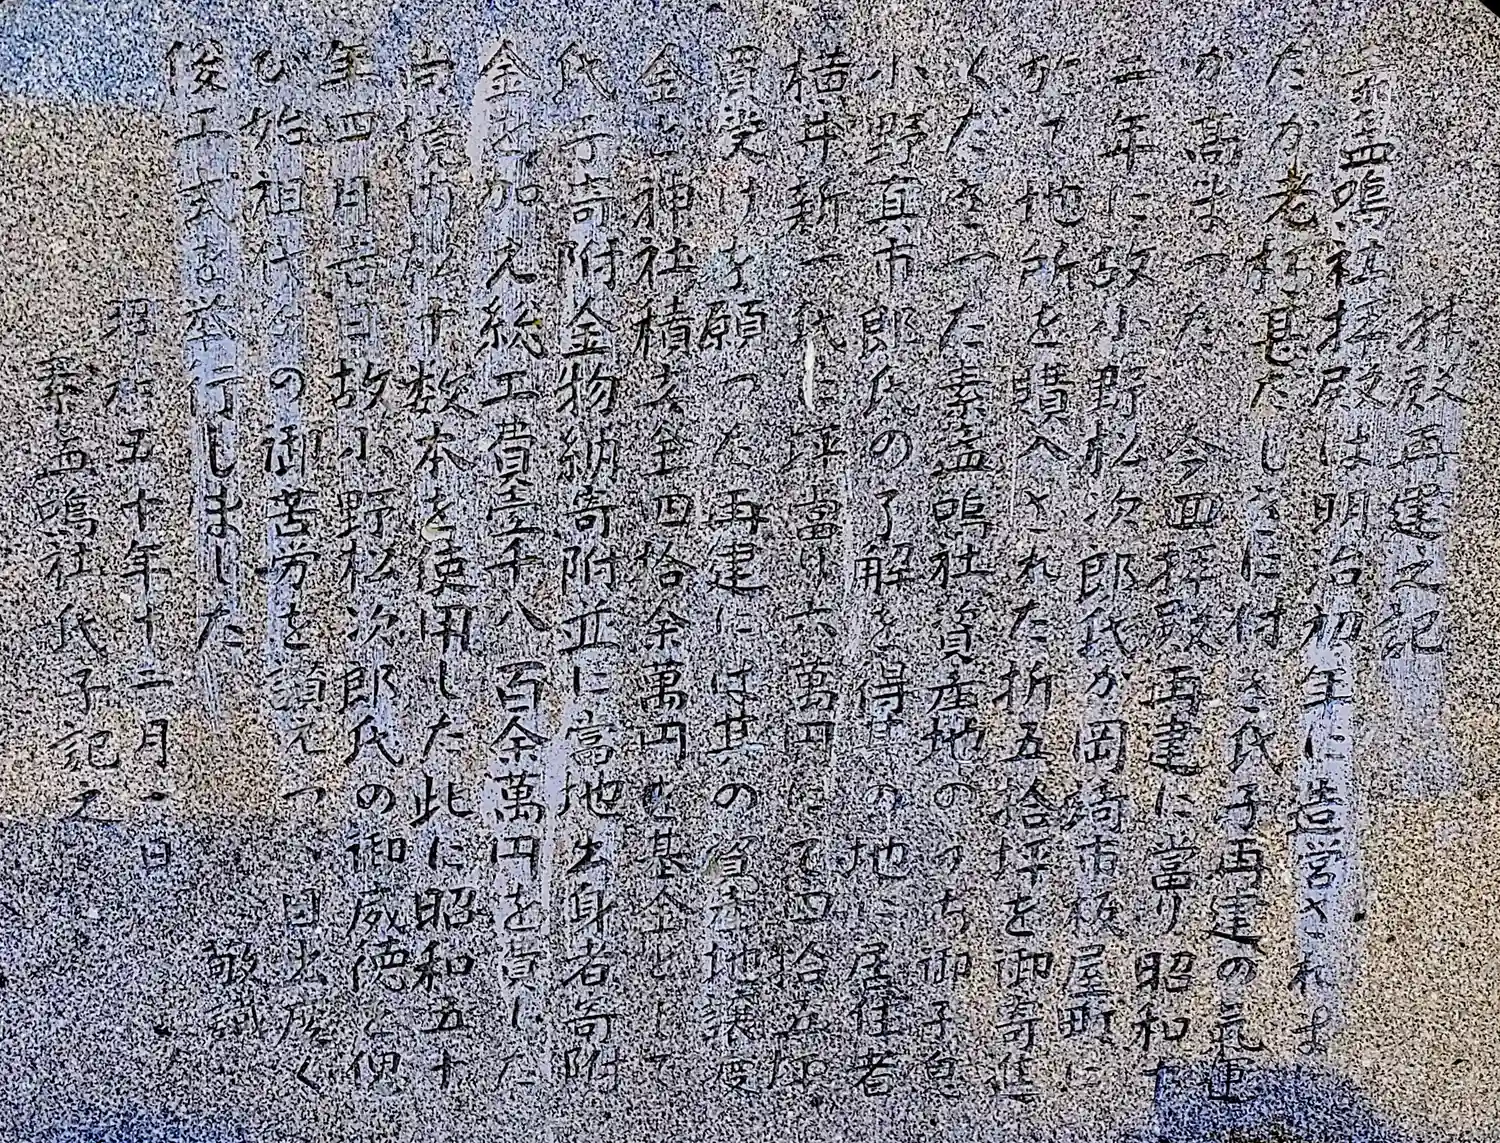 拝殿再建之記
素盞嗚社拝殿は明治初年に造営されま
したが老朽甚だしきに付き氏子再建の気運
が高まった 今回拝殿再建に當り昭和十
二年に故小野松次郎氏が岡崎市板屋町に
於て地所を購入された折五拾坪を御寄進
くださった素盞嗚社資産地のうち御子息
小野真市郎氏の了解を得其の地に居住者
横井新一氏に坪當り六萬円にて四拾五坪
買受けを願った再建には其の資産地譲渡
金と神社積立金四拾余萬円を基金として
氏子寄附金物納寄附並に當地出身者寄附
金を加え総工費壹千八百余萬円を費した
尚境内松十数本を使用した此に昭和五十
年四月吉日故小野松次郎氏の御威徳を偲
び始祖代々の御苦労を讃えつゝ目出度く
竣工式を挙行しました 敬識
昭和五十年十二月一日
素盞嗚社氏子記之